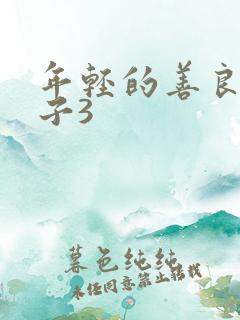 年轻的善良
子3
暮色纯纯
未经同意禁止转载